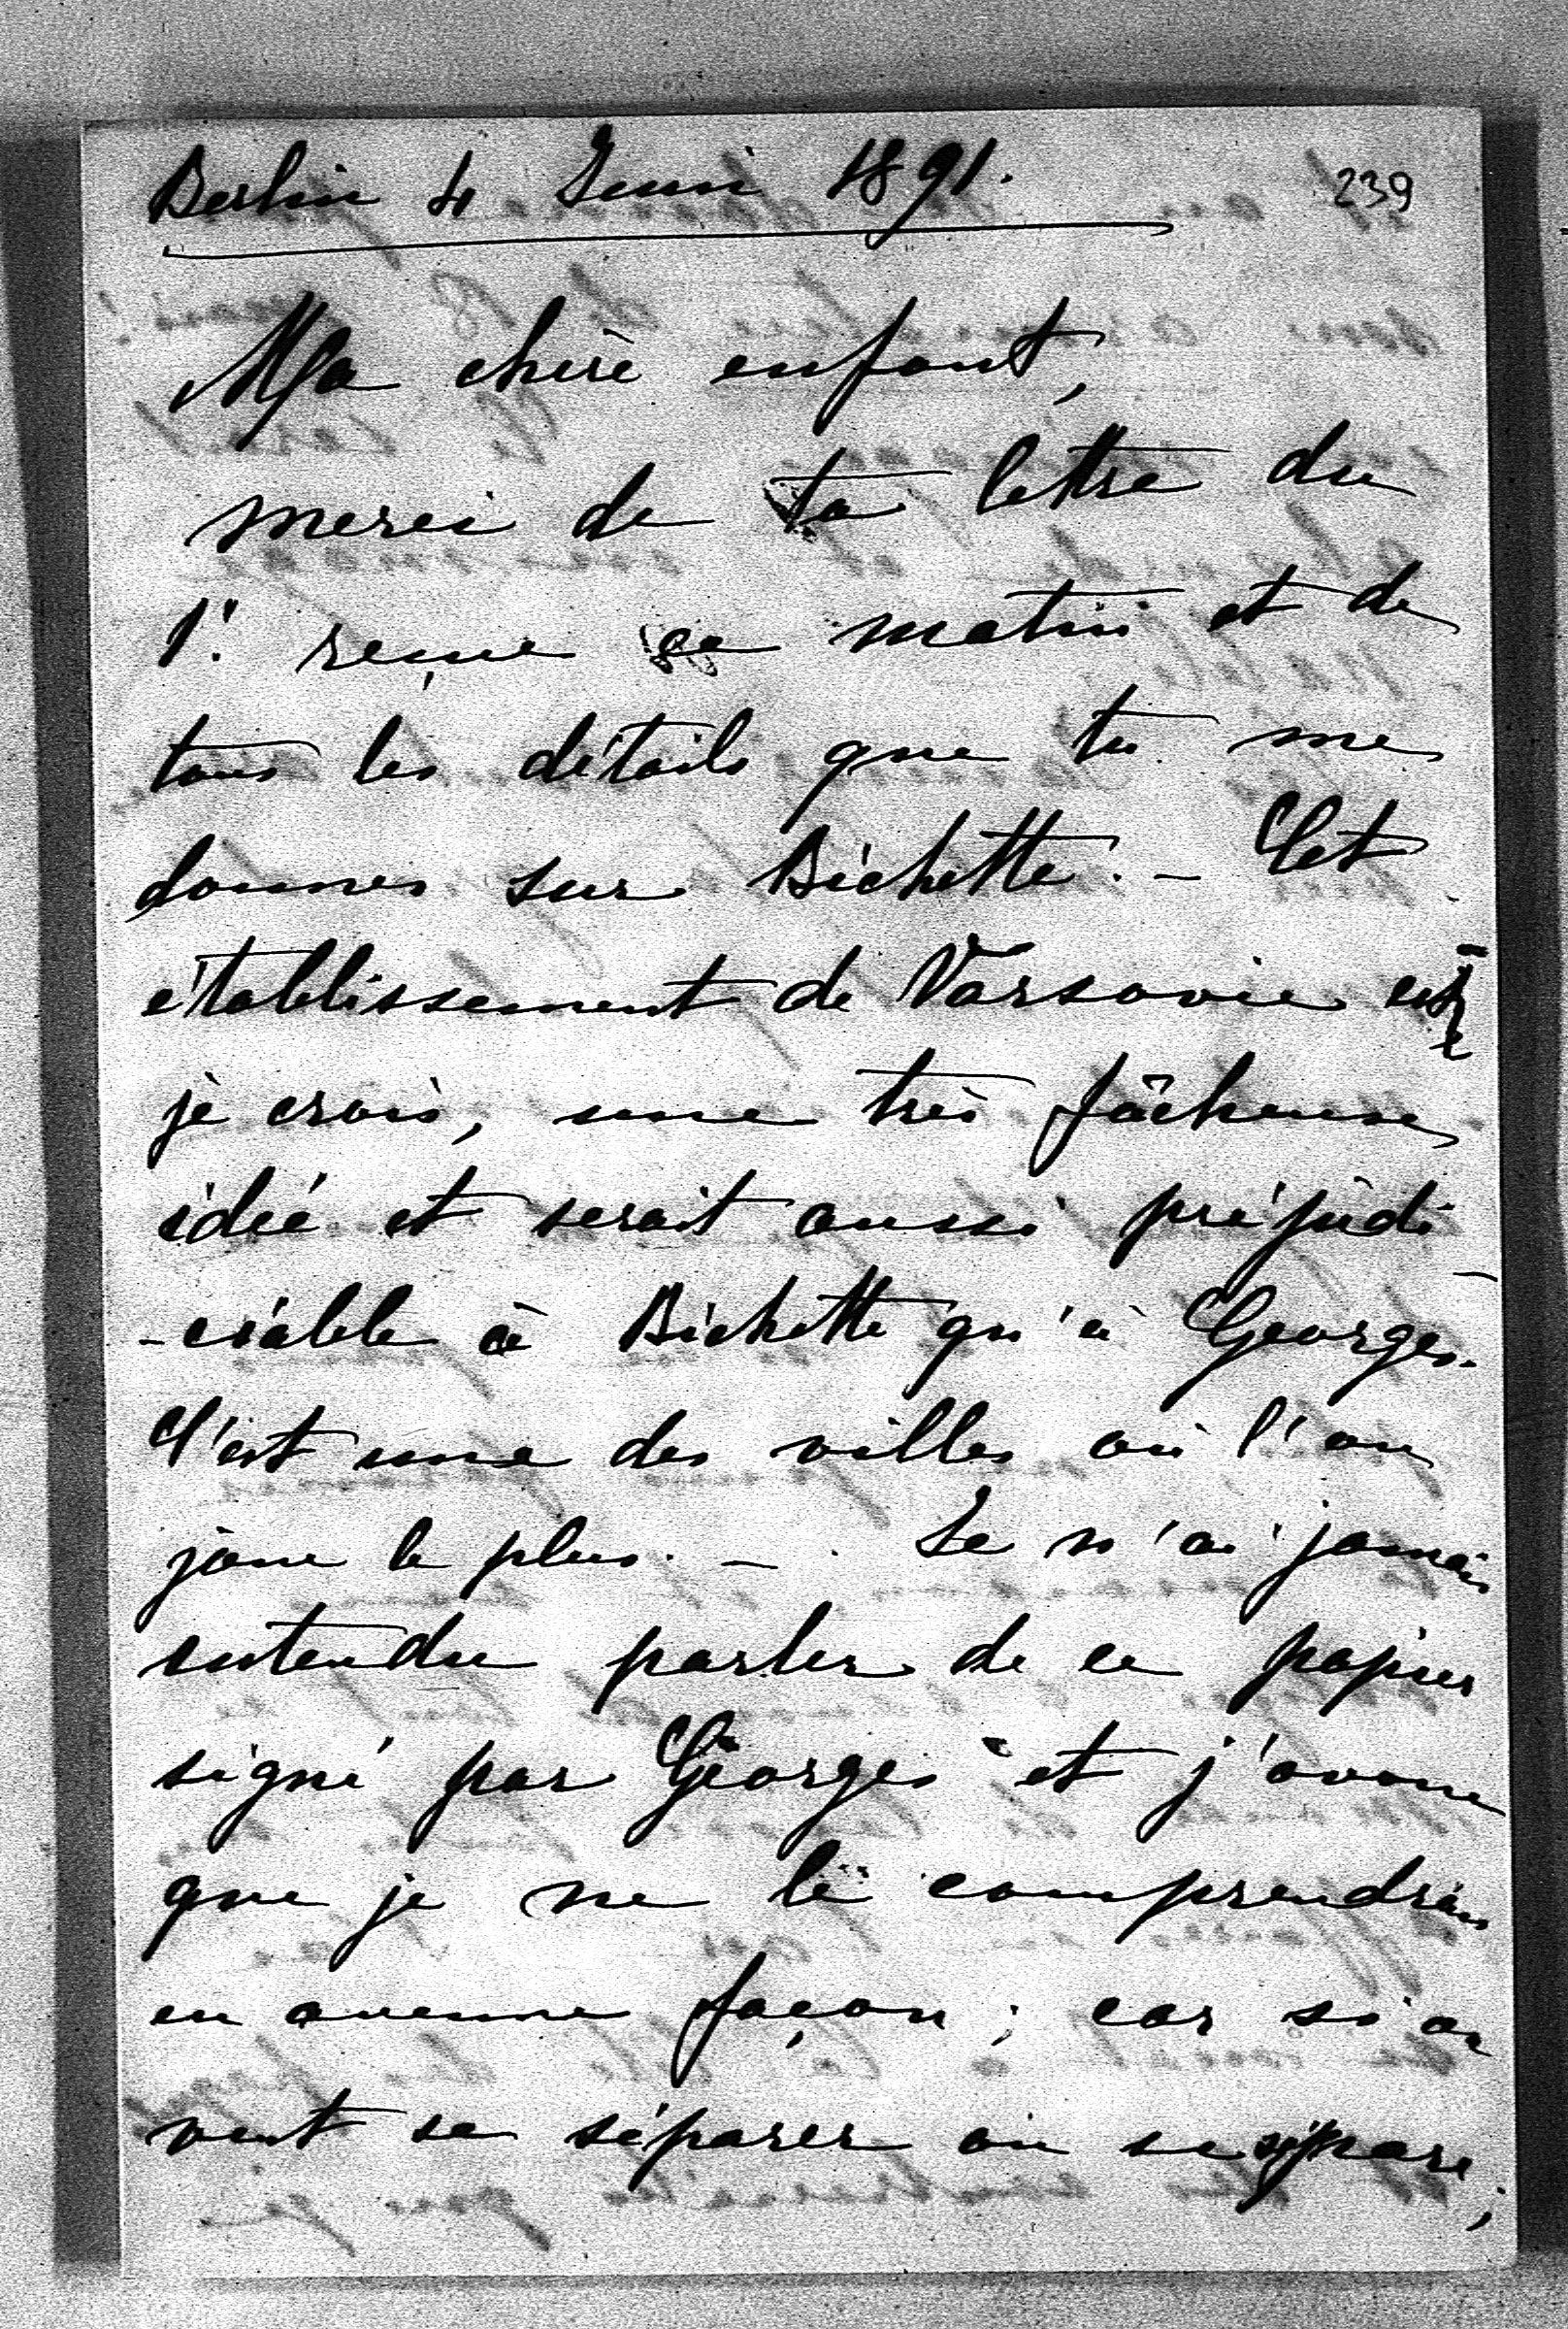 Berlin 4 Juin 1891.
239
Ma chère enfant,
merci de ta lettre du
1r. reçue ce matin et de
tous les détails que tu me
donnes sur Bichette. – Cet
établissement de Varsovie est,
je crois, une très fâcheuse
idée et serait aussi préjudi-
-ciable à Bichette qu'à Georges.
C'est une des villes où l'on
joue le plus. – Je n'ai jamais
entendu parler de ce papier
signé par Georges et j'avoue
que je ne le comprendrais
en aucune façon; car si on
veut se séparer on se sépare;